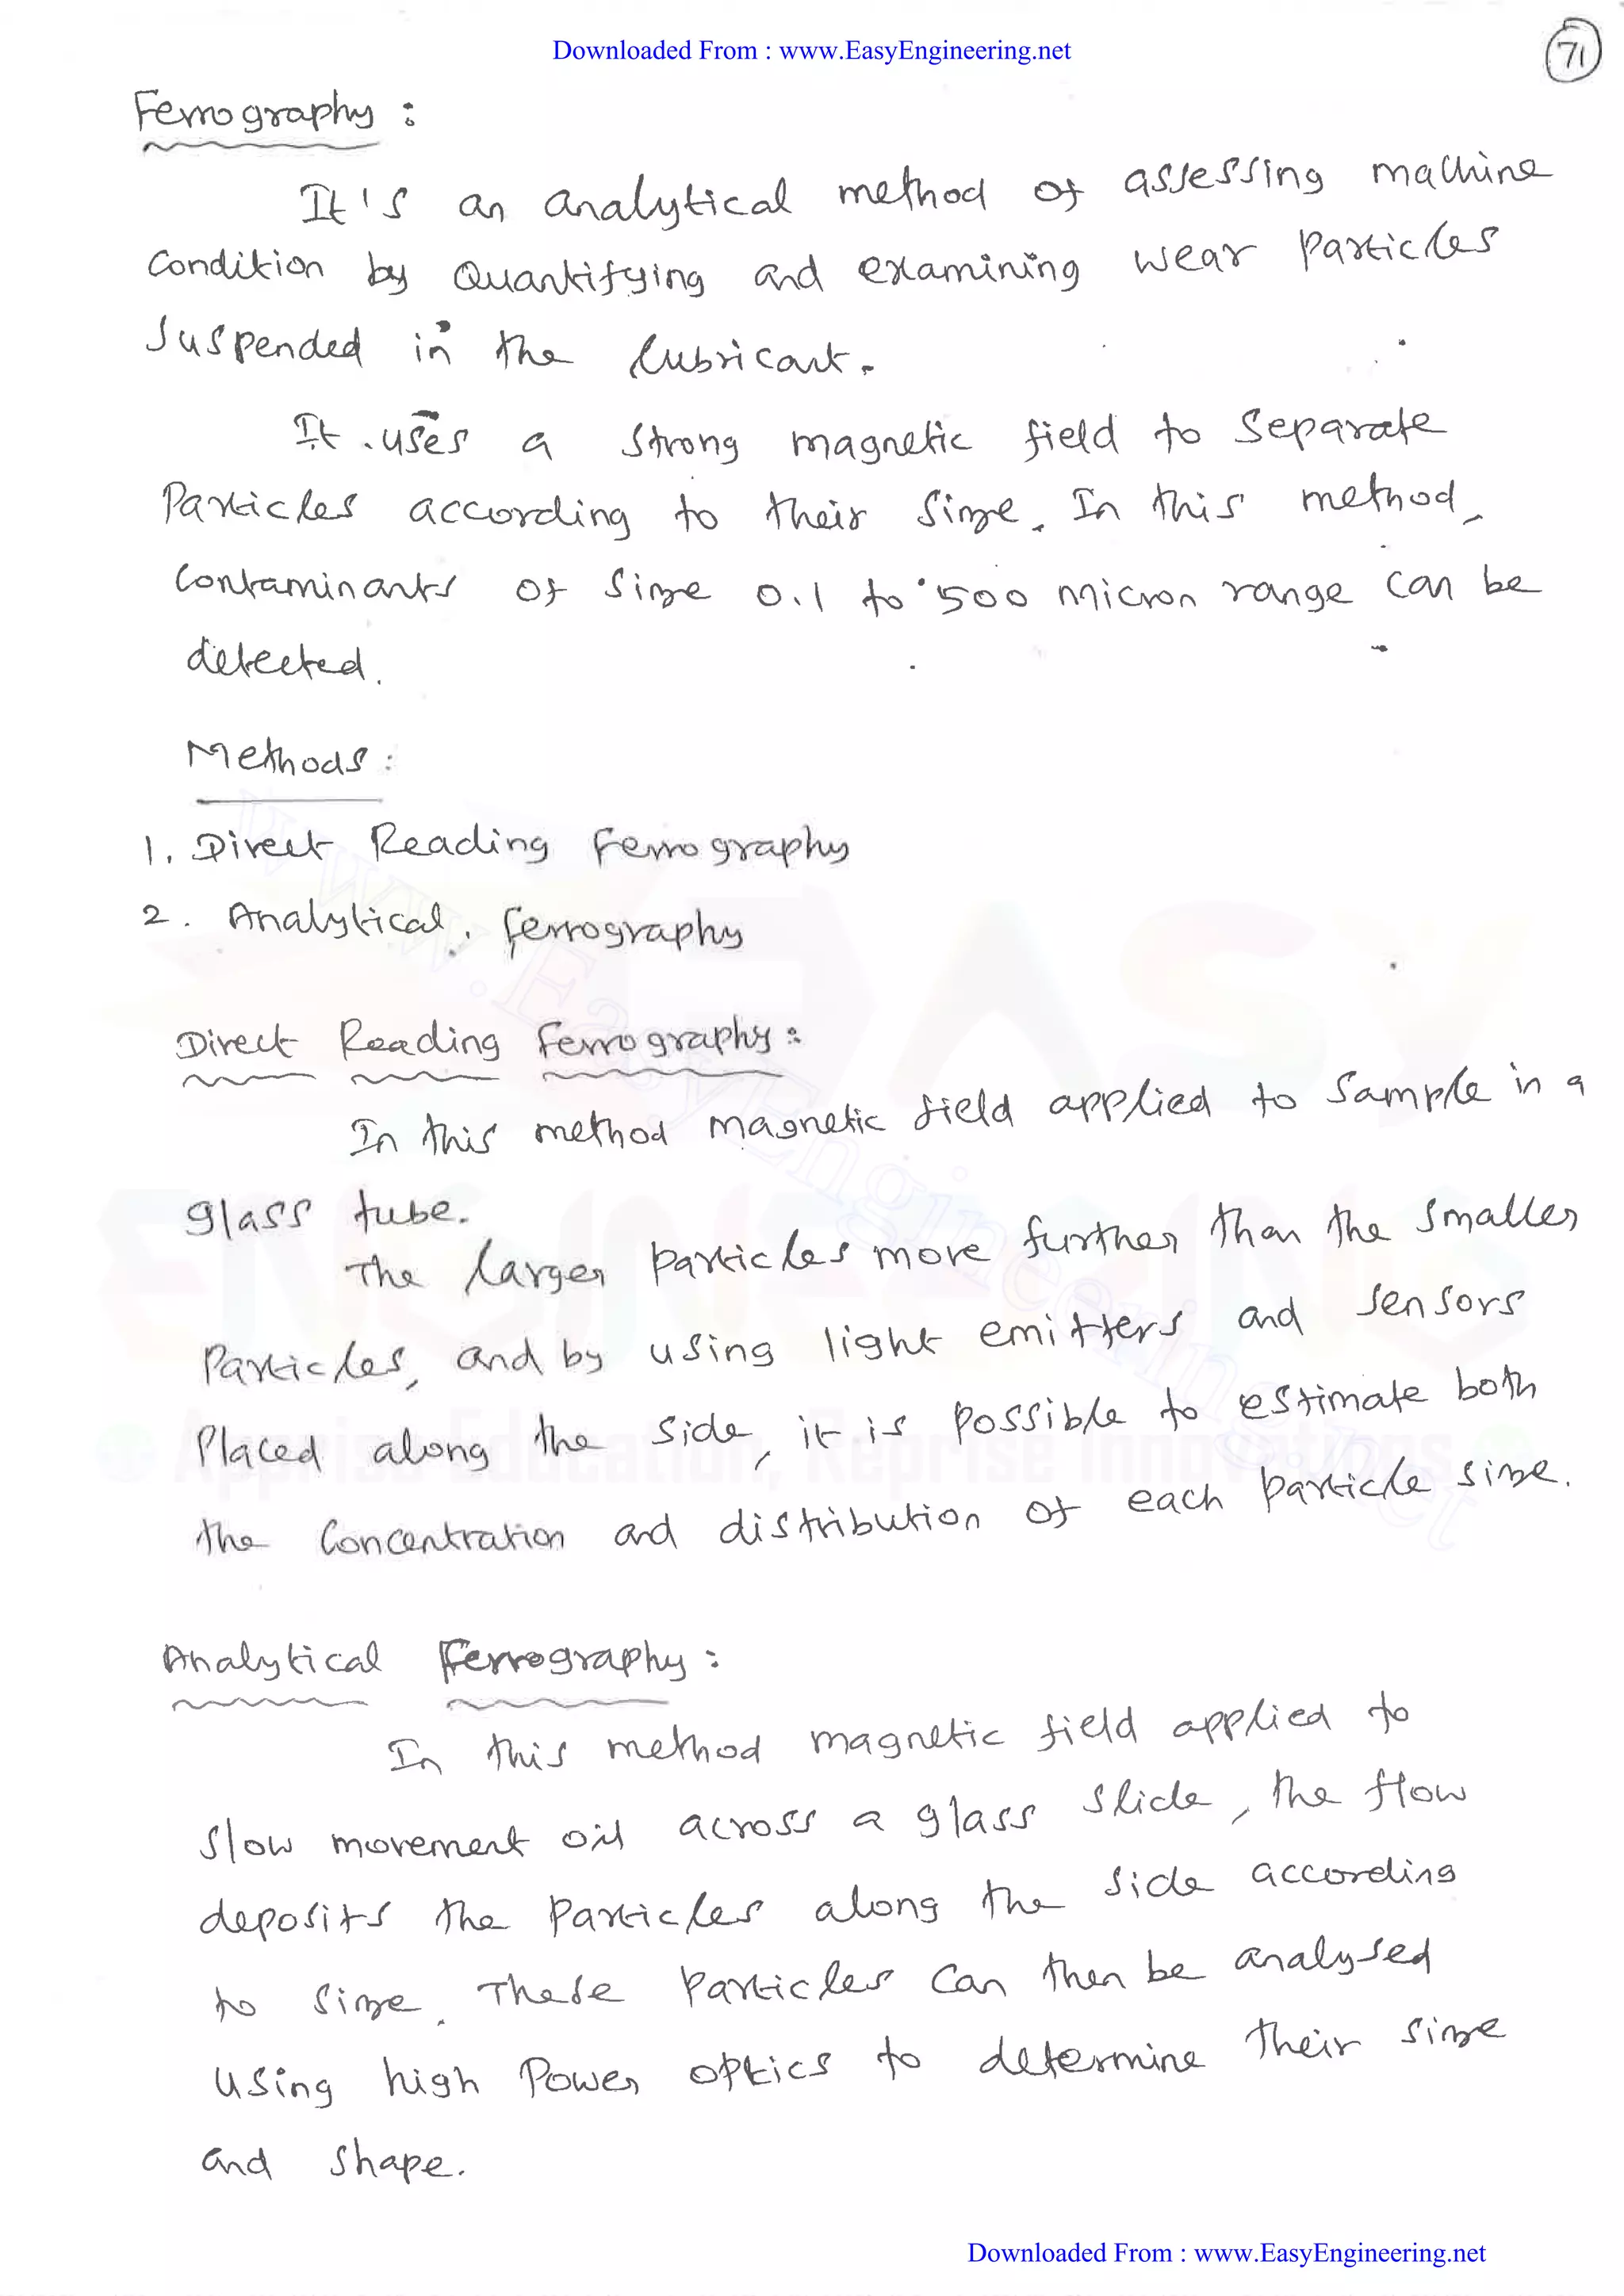 Downloaded From : www.EasyEngineering.net
71
Ferrography :
It's an analytical method of assessing machine
condition by Quantifying and examining wear particles
suspended in the lubricant.
It uses a strong magnetic field to separate
Particles according to their size. In this method,
Contaminants of size 0.1 to 500 micron range can be
detected.
Methods :
1. Direct Reading Ferrography
2. Analytical Ferrography
Direct Reading Ferrography :
In this method magnetic field applied to sample in a
glass tube.
The larger particles more further than the smaller
Particles, and by using light emitters and sensors
Placed along the side, it is possible to estimate both
the Concentration and distribution of each particle size.
Analytical Ferrography :
In this method magnetic field applied to
slow movement oil across a glass slide, the flow
deposits the particles along the side according
to size. These particles can then be analysed
using high Power optics to determine their size
and shape.
www.EasyEngineering.net
EASY
ENGINEERING
Apprise Education, Reprise Innovations
Downloaded From : www.EasyEngineering.net